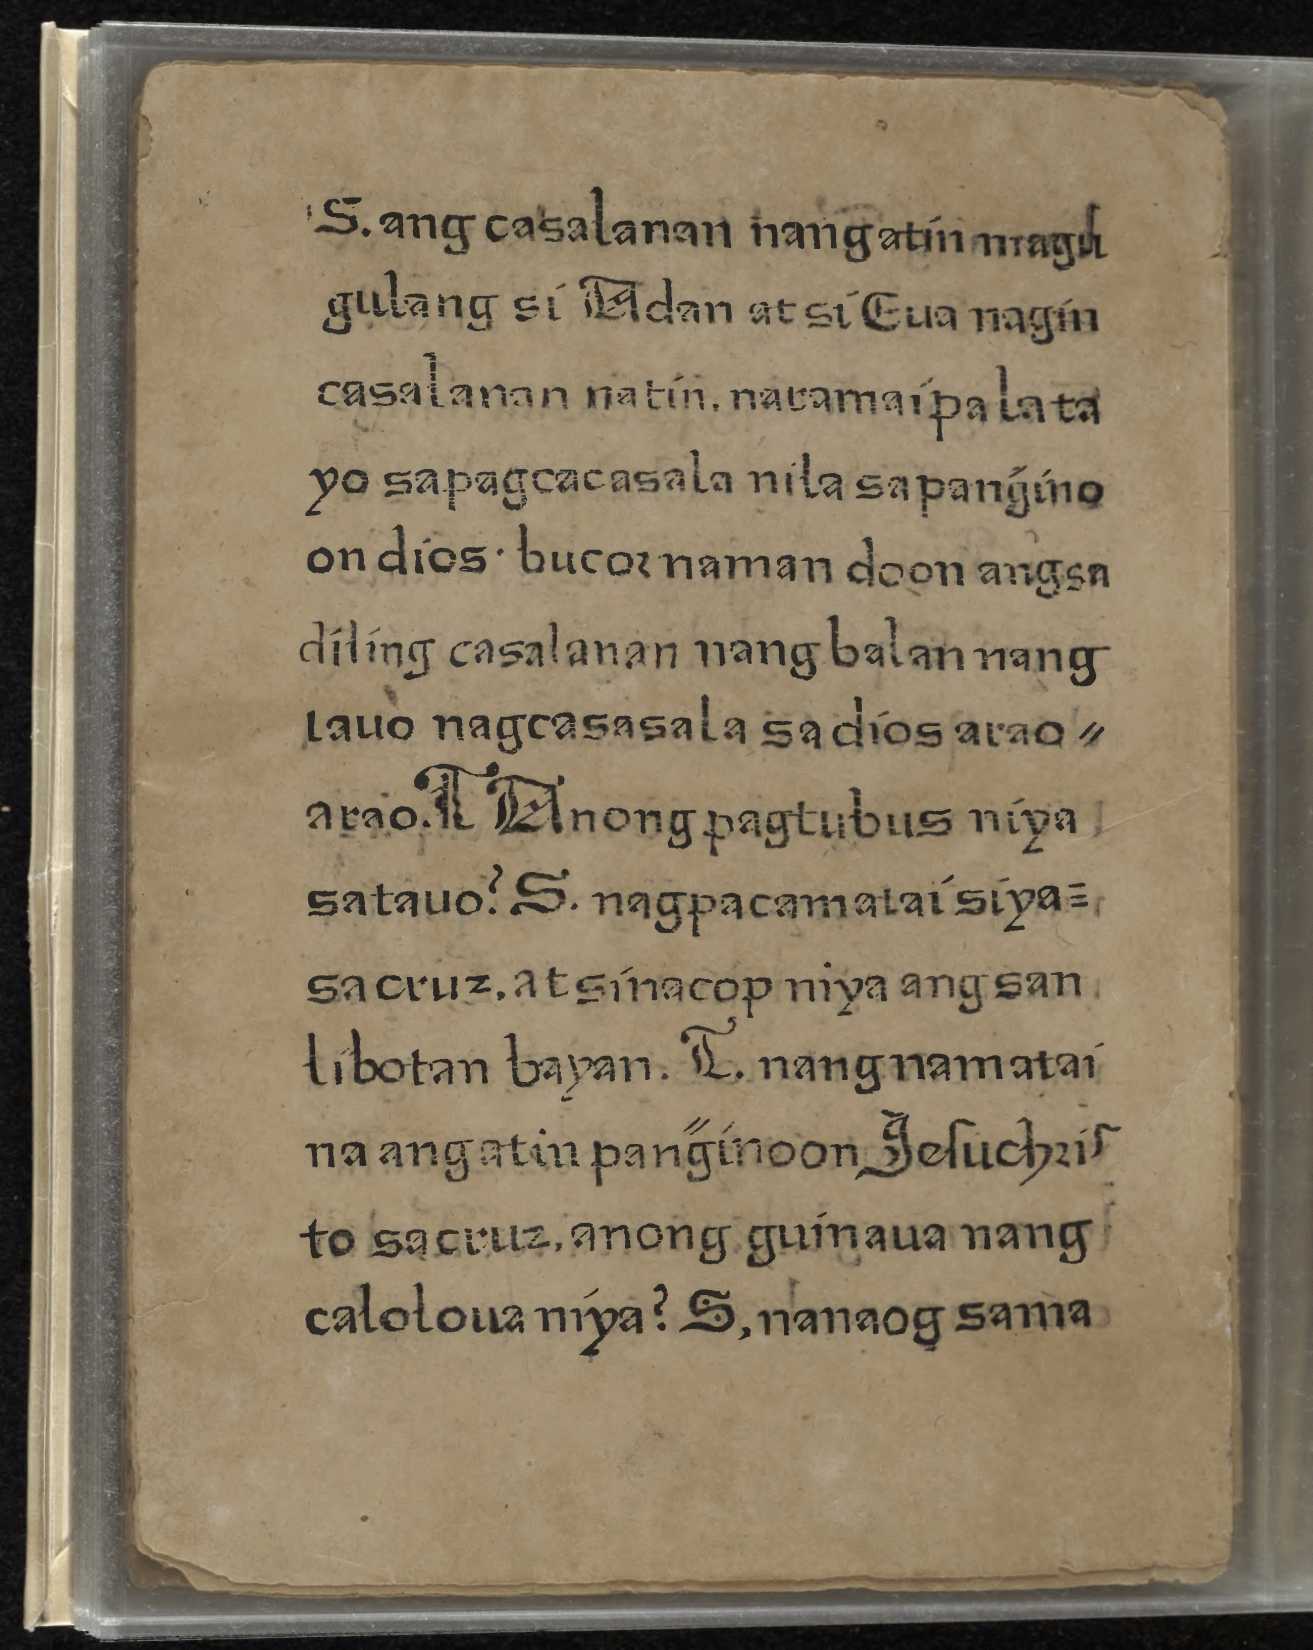 S. ang casalanan nang atin magu
gulang si Adan at si Eua nagin
casalanan natin, naramai pala ta
yo sa pagcacasala nila sa pang̃ino
on dios · bucor naman doon ang sa
diling casalanan nang balan nang
tauo nagcasasala sa dios arao //
arao. T Anong pagtubus niya
sa tauo? S. nagpacamatai siya =
sa cruz, at sinacop niya ang san
libotan bayan. T. nang namatai
na ang atin pang̃inoon Jeſuchriſ
to sa cruz, anong guinaua nang
caloloua niya? S, nanaog sa ma